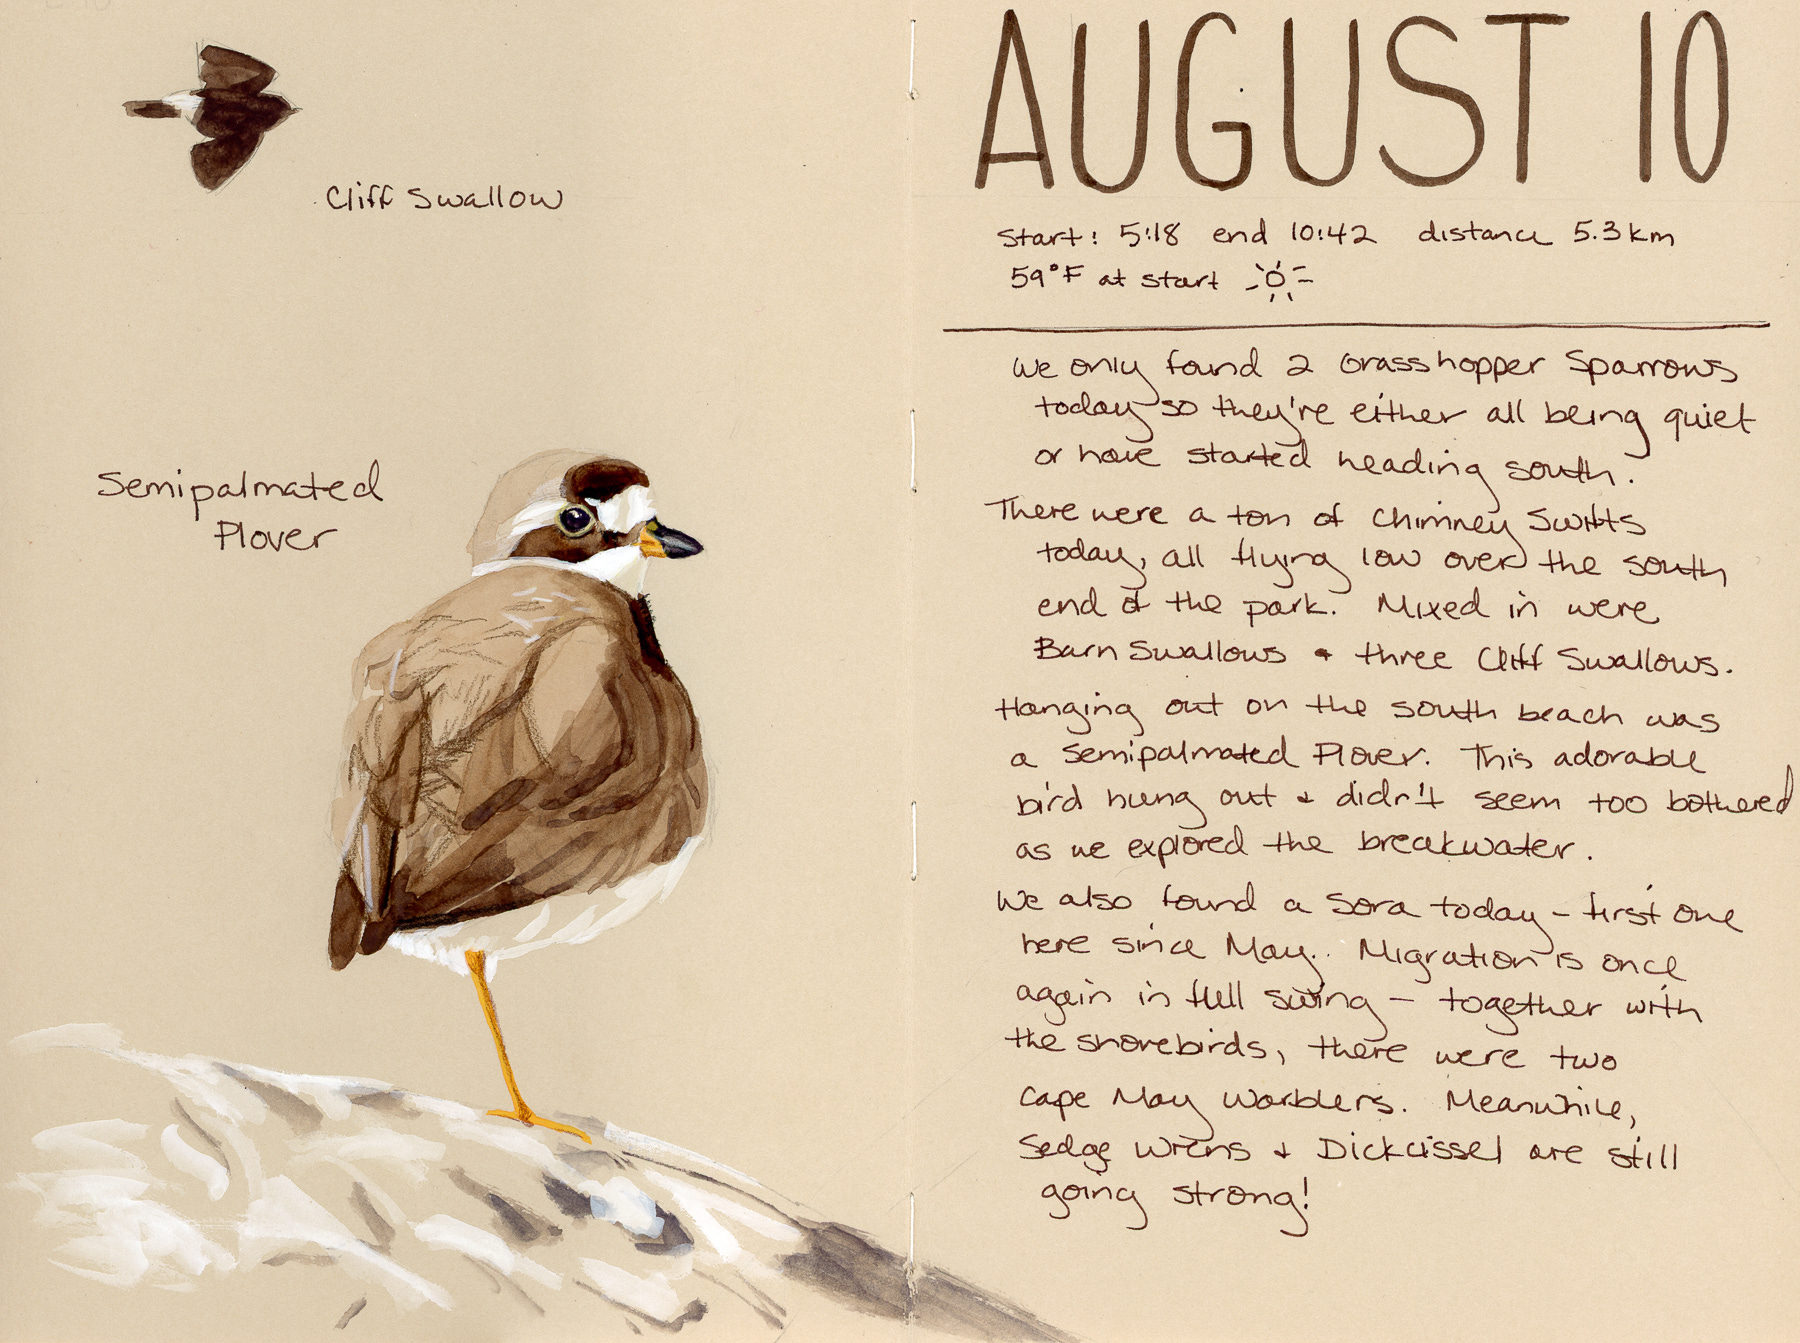 Cliff Swallow
Semipalmated
Plover
AUGUST 10
start: 5:18 end 10:42 distance 5.3 km
59°F at start
We only found 2 Grasshopper Sparrows
today so they're either all being quiet
or have started heading south.
There were a ton of Chimney Swifts
today, all flying low over the south
end of the park. Mixed in were
Barn Swallows + three Cliff Swallows.
Hanging out on the south beach was
a Semipalmated Plover. This adorable
bird hung out + didn't seem too bothered
as we explored the breakwater.
We also found a Sora today - first one
here since May. Migration is once
again in full swing - together with
the shorebirds, there were two
Cape May Warblers. Meanwhile,
Sedge Wrens + Dickcissel are still
going strong!